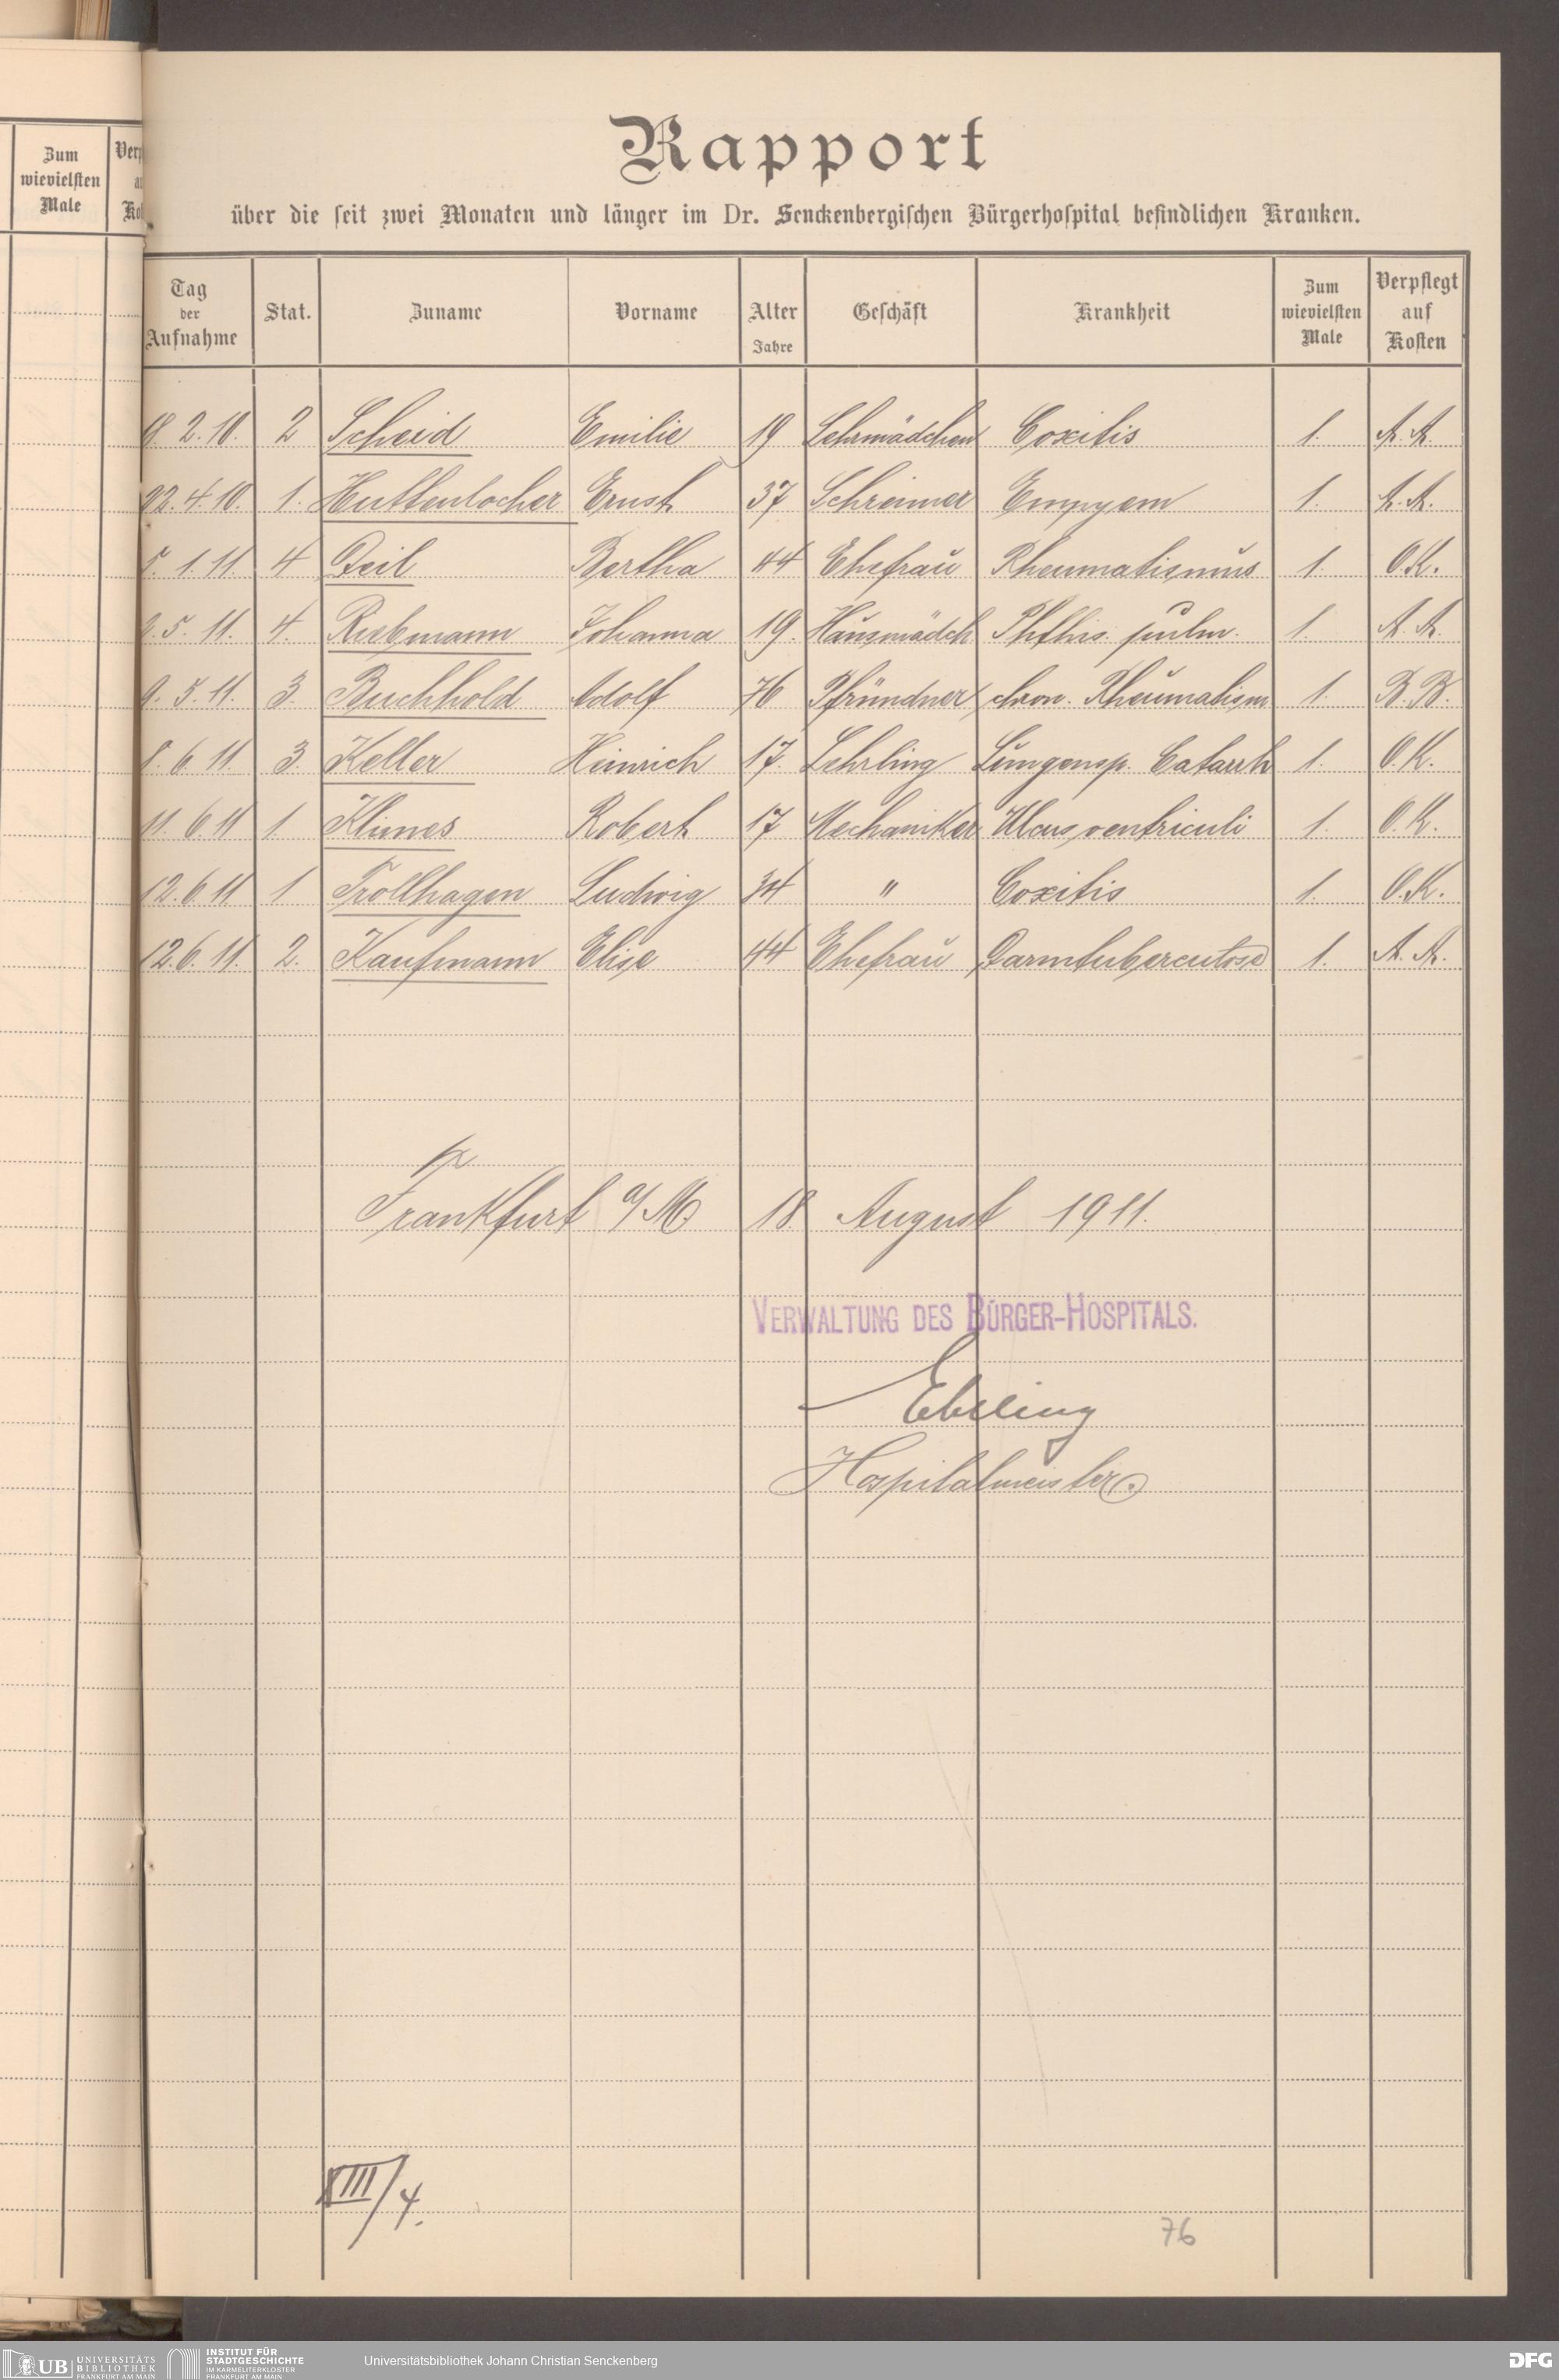 Zum
wievielsten
Male
Rapport
über die seit zwei Monaten und länger im Dr. Senckenbergischen Bürgerhospital befindlichen Kranken.
Tag der Aufnahme Stat. Zuname Vorname Alter Jahre Geschäft Krankheit Zum wievielsten Male Verpflegt auf Kosten
8. 2. 10. 2 Scheid Emilie 19 Lehrmädchen Coxitis 1. A. A.
22. 4. 10. 1. Huttenlocher Ernst 37 Schreiner Empyem 1. A. A.
5. 1. 11. 4 Deil Bertha 44 Ehefrau Rheumatismus 1. O.K.
5. 11. 4. Johanna 19. Hausmädch Phthis. pulm. 1. A. A.
9. 5. 11. 3. Buchhold Adolf 76 Pfründner chron. Rheumatism 1. B. B.
8. 6. 11. 3. Keller Heinrich 17. Lehrling Lungensp. Catarrh 1. O. K.
11. 6. 11 1 Klimes Robert 17 Mechaniker Ulcus ventriculi 1. O. K.
12. 6. 11 1 Trollhagen Ludwig 34 " Coxitis 1. O. K.
12. 6. 11. 2. Kaufmann Elise 44 Ehefrau Darmtuberculose 1. A. A.
Frankfurt a/M 18. August 1911.
VERWALTUNG DES BÜRGER-HOSPITALS.
Ebeling
Hospitalmeister.
XIII/4.
76
UB UNIVERSITÄTS BIBLIOTHEK FRANKFURT AM MAIN
INSTITUT FÜR STADTGESCHICHTE IM KARMELITERKLOSTER FRANKFURT AM MAIN
Universitätsbibliothek Johann Christian Senckenberg
DFG